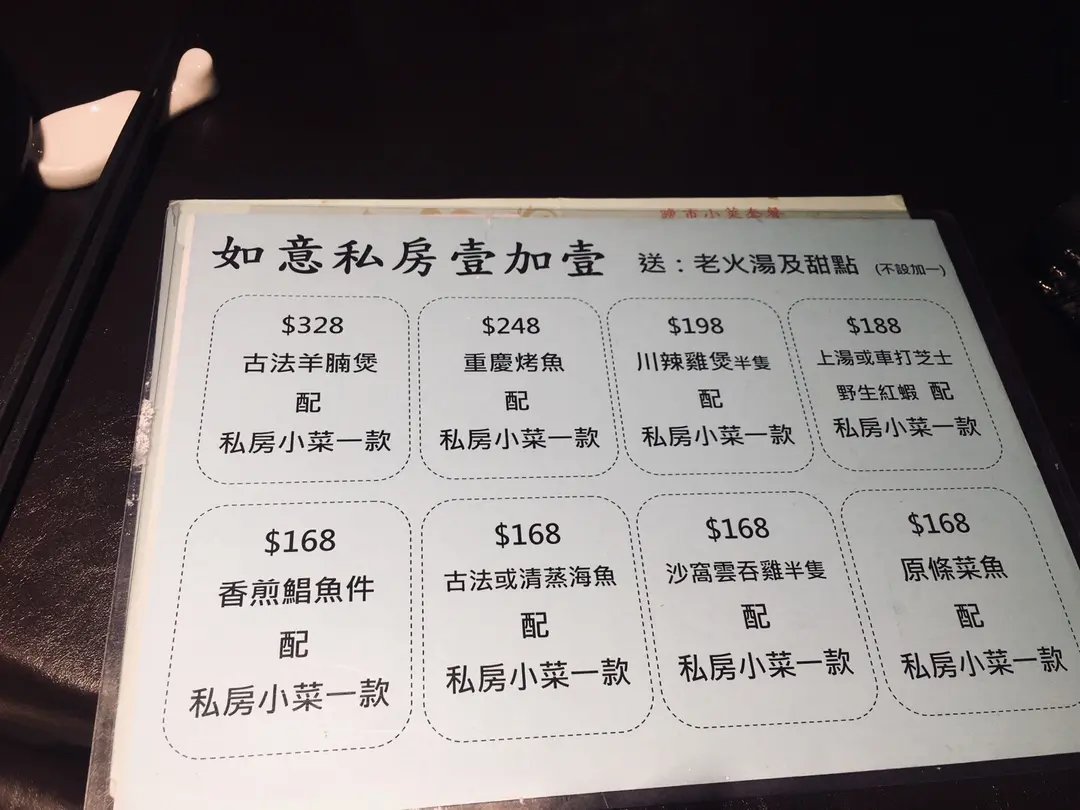 晚市小菜套餐
如意私房壹加壹 送：老火湯及甜點 (不設加一)
$328
古法羊腩煲
配
私房小菜一款
$248
重慶烤魚
配
私房小菜一款
$198
川辣雞煲半隻
配
私房小菜一款
$188
上湯或車打芝士
野生紅蝦 配
私房小菜一款
$168
香煎鯧魚件
配
私房小菜一款
$168
古法或清蒸海魚
配
私房小菜一款
$168
沙窩雲吞雞半隻
配
私房小菜一款
$168
原條菜魚
配
私房小菜一款